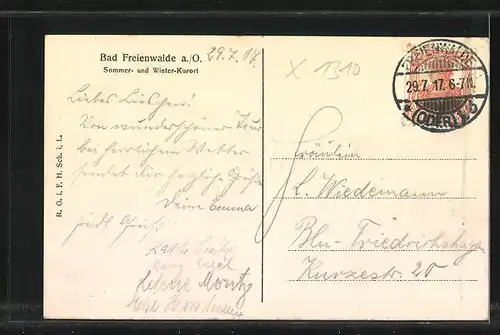 Bad Freienwalde a./O.
Sommer- und Winter-Kurort
29.7.17.
X 1310
FREIENWALDE
29.7.17. 6-7N.
(ODER)
Liebes Lieschen!
Von wunderschöner Tour
bei herrlichem Wetter
sendet dir herzliche Grüße
Deine Emma
Fräulein
L. Wiedemann
Bln-Friedrichshagen
Kurzestr. 20
Helene Moritz
R. G. i. F. H. Sch. i. L.